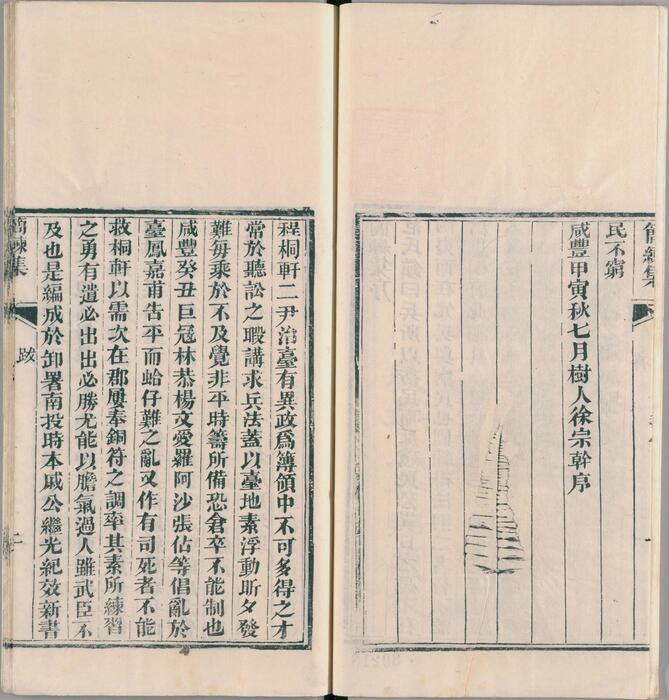 民不窮
咸豐甲寅秋七月樹人徐宗幹序
簡練集
程桐軒二尹治臺有異政爲簿領中不可多得之才
常於聽訟之暇講求兵法蓋以臺地素浮動斯夕發
難每乘於不及覺非平時籌所備恐倉卒不能制也
咸豐癸丑巨冦林恭楊文愛羅阿沙張佔等倡亂於
臺鳳嘉甫告平而蛤仔難之亂又作有司死者不能
救桐軒以需次在郡屢奉銅符之調率其素所練習
之勇有遺必出出必勝尤能以膽氣過人雖武臣不
及也是編成於卸署南投時本戚公繼光紀效新書
簡練集
跋
二